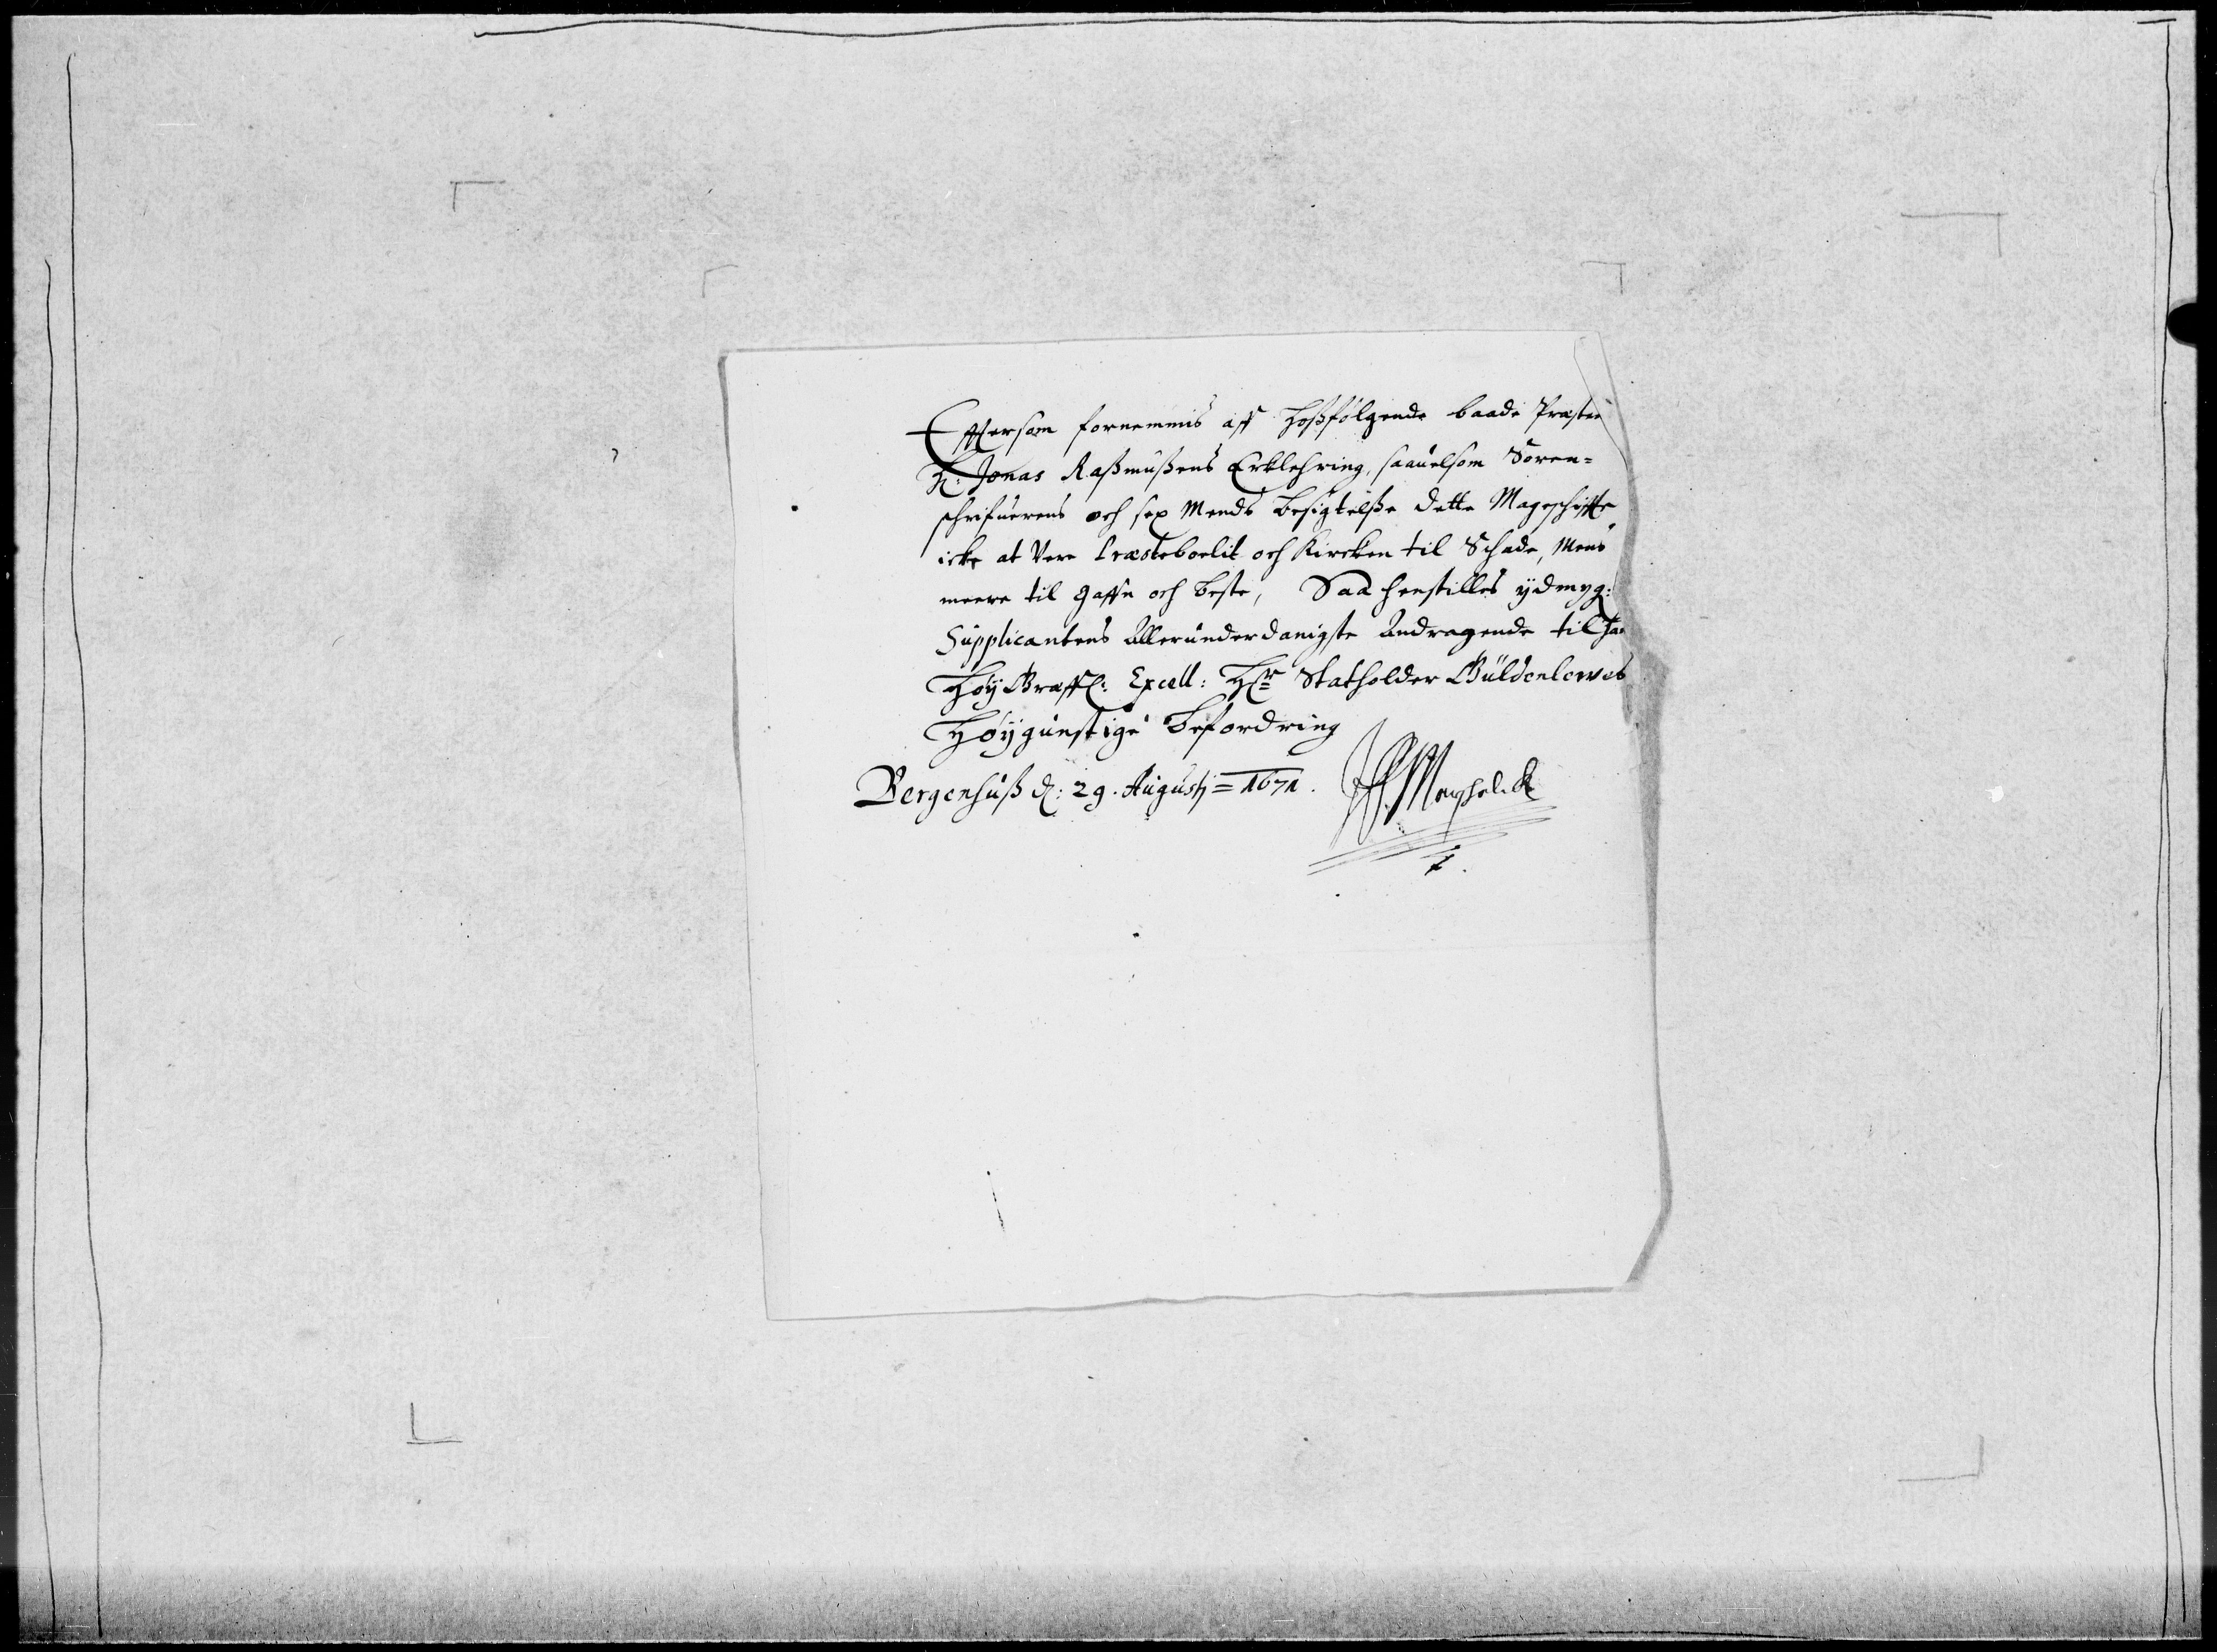 Efftersom fornemmis aff hoßfølgende baade Præsten
H: Jonas Raßmußens Erklehring, saauelsom Soren=
schrifuerens och sex Mends besigtelße dette Mageschiffte
icke at Vere Præsteboelit och Kircken til Schade, Mens
meere til gaffn och beste, Saa henstilles ydmyg:
Supplicantens Allerunderdanigste Andragende til Ha
Høy Greffl: Excell: Hr Statholder Güldenlewes
Høygunstige befordring
Bergenhuß d: 29. Augustj = 1671.